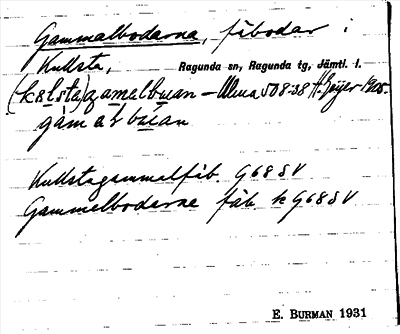 Gammalbodarna, fäbodar i
Kullsta, Ragunda sn, Ragunda tg, Jämtl. l.
(kɛlsta) gamalbuan – Ulma 508:38 H. Geijer 1905.
gamalbuan
Kullstagammalfäb. G68SV
Gammelbodarne fäb. k G68SV
E. BURMAN 1931